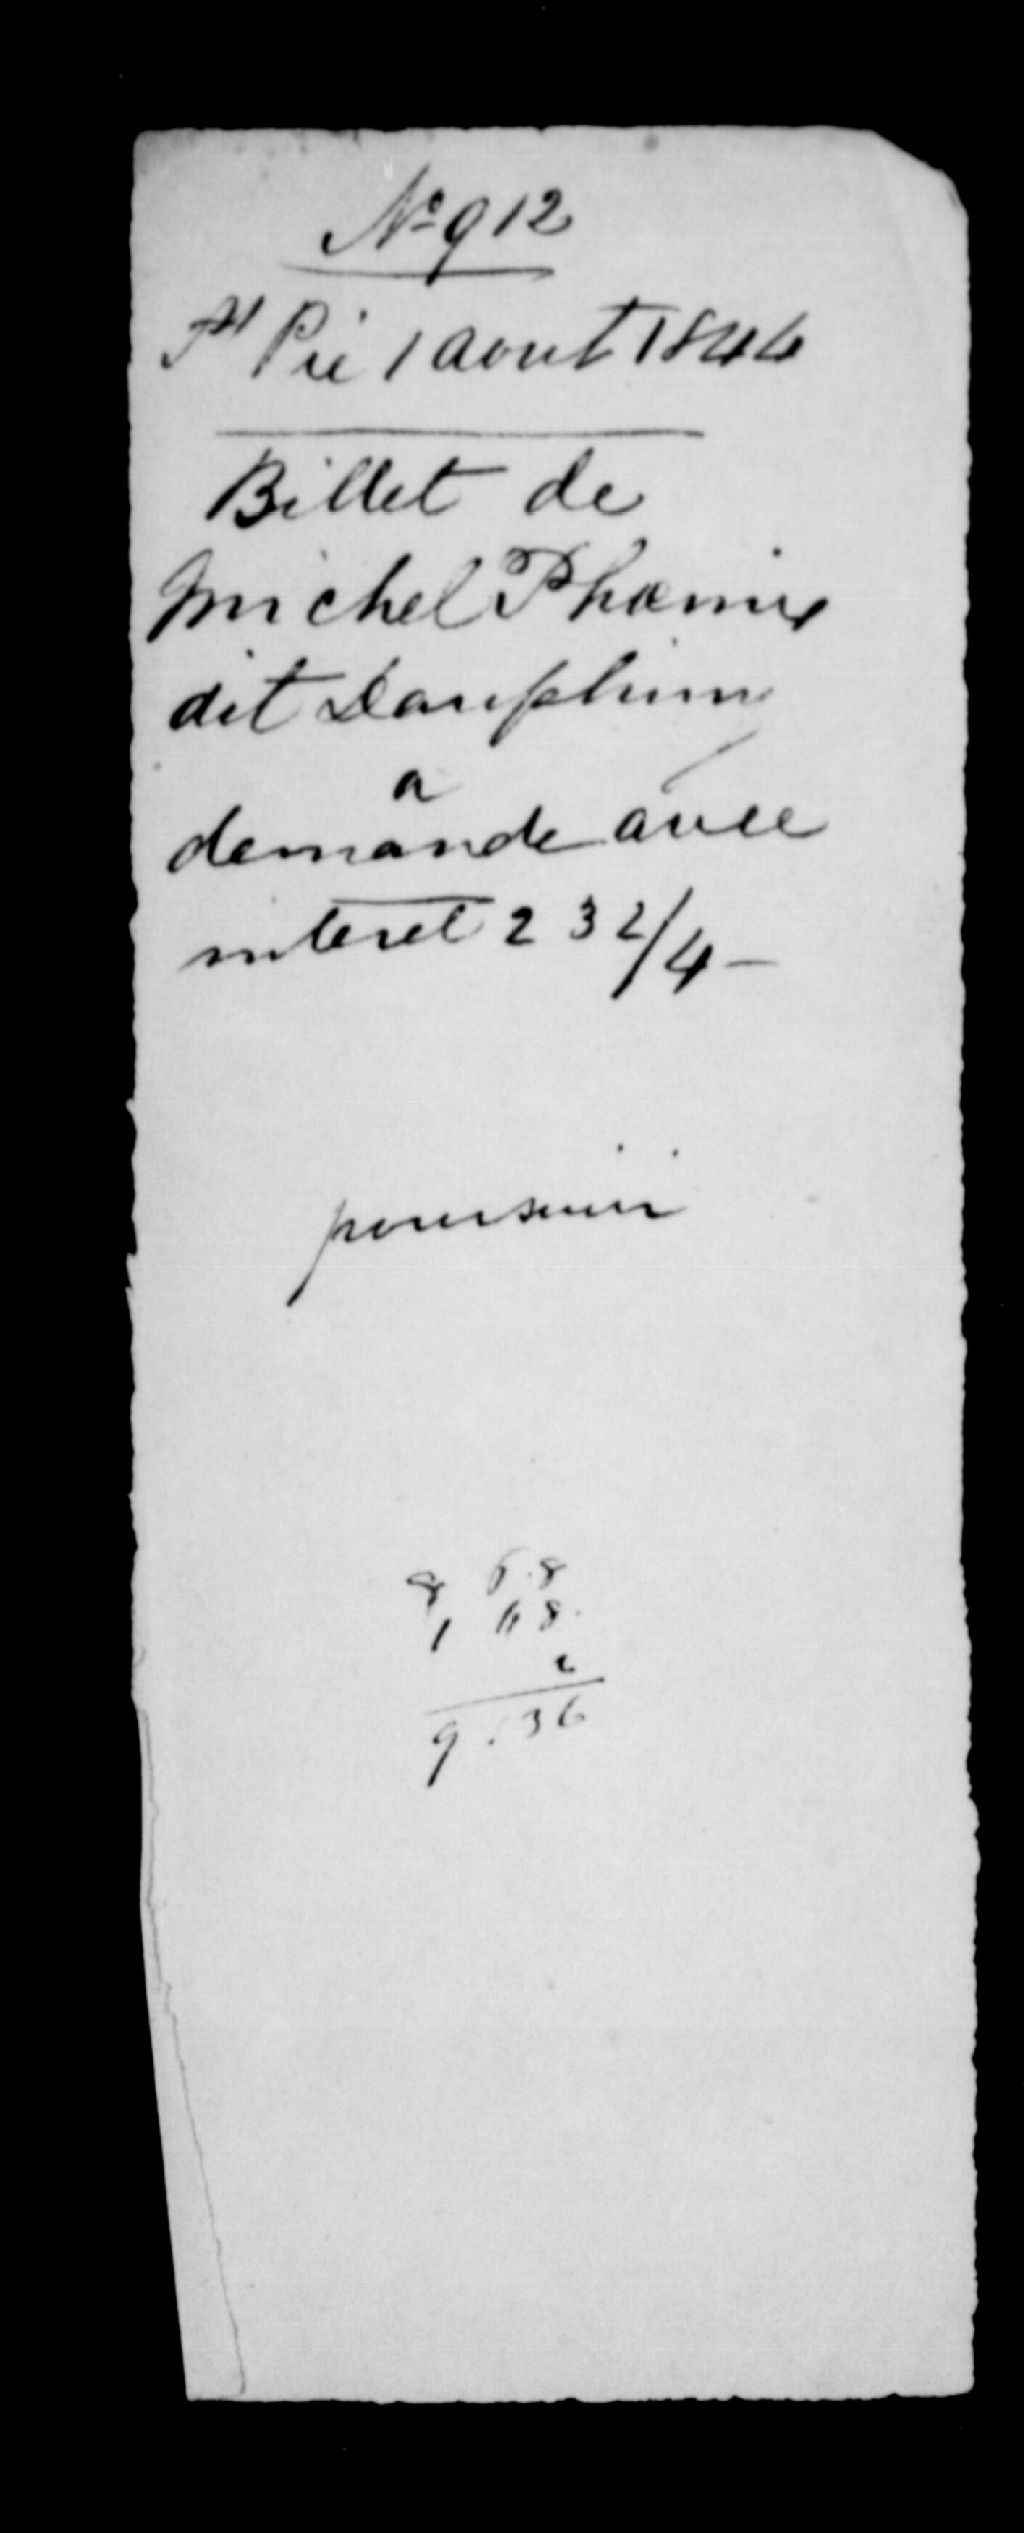 No 912
St Pie 1 aout 1844
Billet de
Michel Phœnix
dit Dauphin
a
demande avec
interet 232/4 –
poursuivi
8 6.8
1 68.
2
9.36